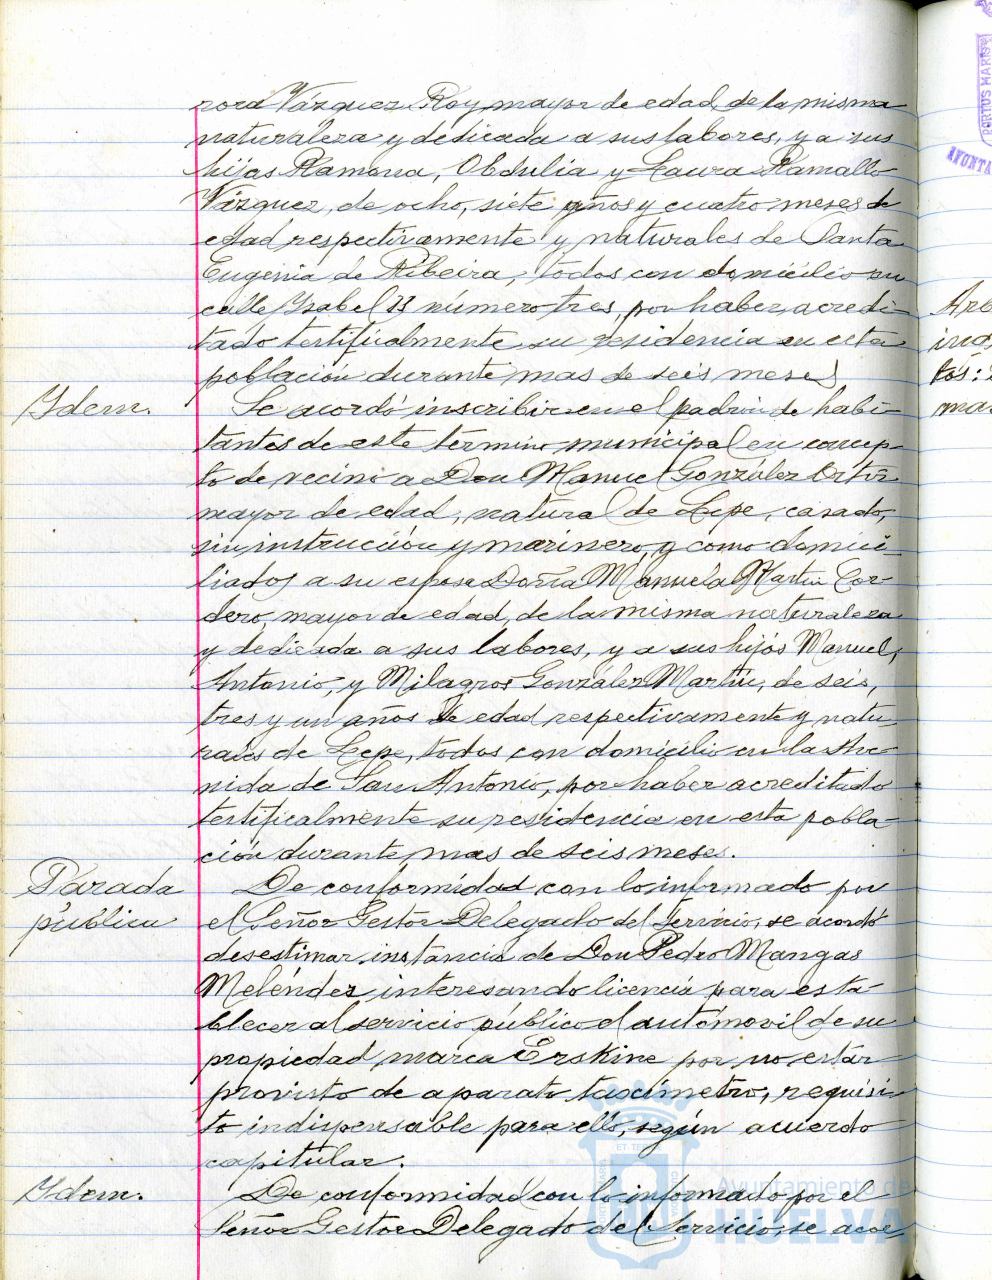 rora Vázquez Roy, mayor de edad, de la misma
naturaleza y dedicada a sus labores, y a sus
hijas Ramona, Obdulia y Laura Ramallo
Vázquez, de ocho, siete años y cuatro meses de
edad respectivamente y naturales de Santa
Eugenia de Ribeira, todos con domicilio en
calle Ysabel II número tres, por haber acredi-
tado testificalmente su residencia en esta
población durante mas de seis meses
Ydem.
Se acordó inscribir en el padrón de habi-
tantes de este término municipal en concep-
to de vecino a Don Manuel González Ortiz
mayor de edad, natural de Lepe, casado,
sin instrucción y marinero, y como domici-
liados a su esposa Doña Manuela Martín Cor-
dero, mayor de edad, de la misma naturaleza
y dedicada a sus labores, y a sus hijos Manuel,
Antonio, y Milagros González Martín, de seis,
tres y un años de edad respectivamente y natu
rales de Lepe, todos con domicilio en la Ave-
nida de San Antonio, por haber acreditado
testificalmente su residencia en esta pobla-
ción durante mas de seis meses.
Parada
pública
De conformidad con lo informado por
el Señor Gestor Delegado del Servicio, se acordó
desestimar instancia de Don Pedro Mangas
Meléndez interesando licencia para esta-
blecer al servicio público el automovil de su
propiedad marca Erskine por no estar
provisto de aparato taxímetro, requisi-
to indispensable para ello, según acuerdo
capitular.
Ydem.
De conformidad con lo informado por el
Señor Gestor Delegado del Servicio, se acor
PORTUS MARIS
AYUNTA
ET TERRAE
Ayuntamiento de
HUELVA